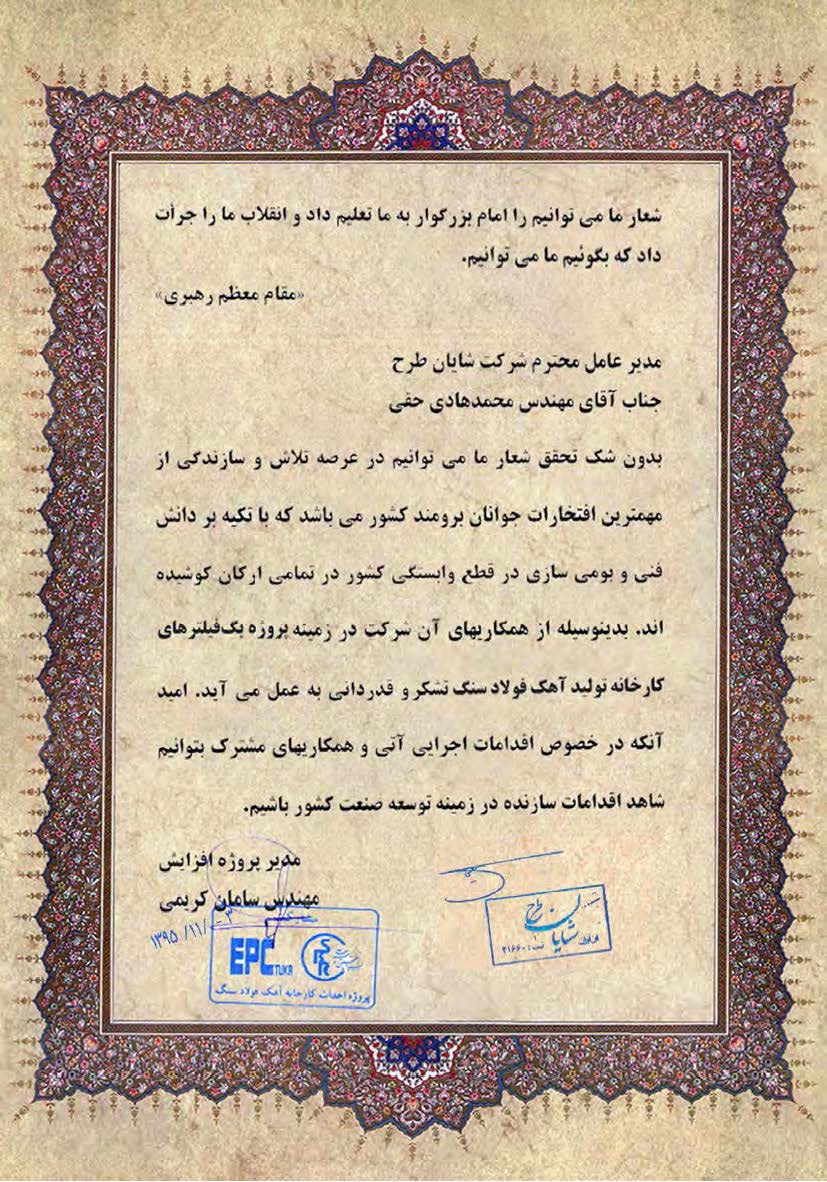 شعار ما می توانیم را امام بزرگوار به ما تعلیم داد و انقلاب ما را جرأت
داد که بگوئیم ما می توانیم.
«مقام معظم رهبری»
مدیر عامل محترم شرکت شایان طرح
جناب آقای مهندس محمدهادی حقی
بدون شک تحقق شعار ما می توانیم در عرصه تلاش و سازندگی از
مهمترین افتخارات جوانان برومند کشور می باشد که با تکیه بر دانش
فنی و بومی سازی در قطع وابستگی کشور در تمامی ارکان کوشیده
اند. بدینوسیله از همکاریهای آن شرکت در زمینه پروژه بگ‌فیلترهای
کارخانه تولید آهک فولاد سنگ تشکر و قدردانی به عمل می آید. امید
آنکه در خصوص اقدامات اجرایی آتی و همکاریهای مشترک بتوانیم
شاهد اقدامات سازنده در زمینه توسعه صنعت کشور باشیم.
مدیر پروژه افزایش
مهندس سامان کریمی
۱۳۹۵/۱۱/۰۳
EPC TUKA
پروژه احداث کارخانه آهک فولاد سنگ
شایان طرح
ثبت: ۲۱۶۶۰